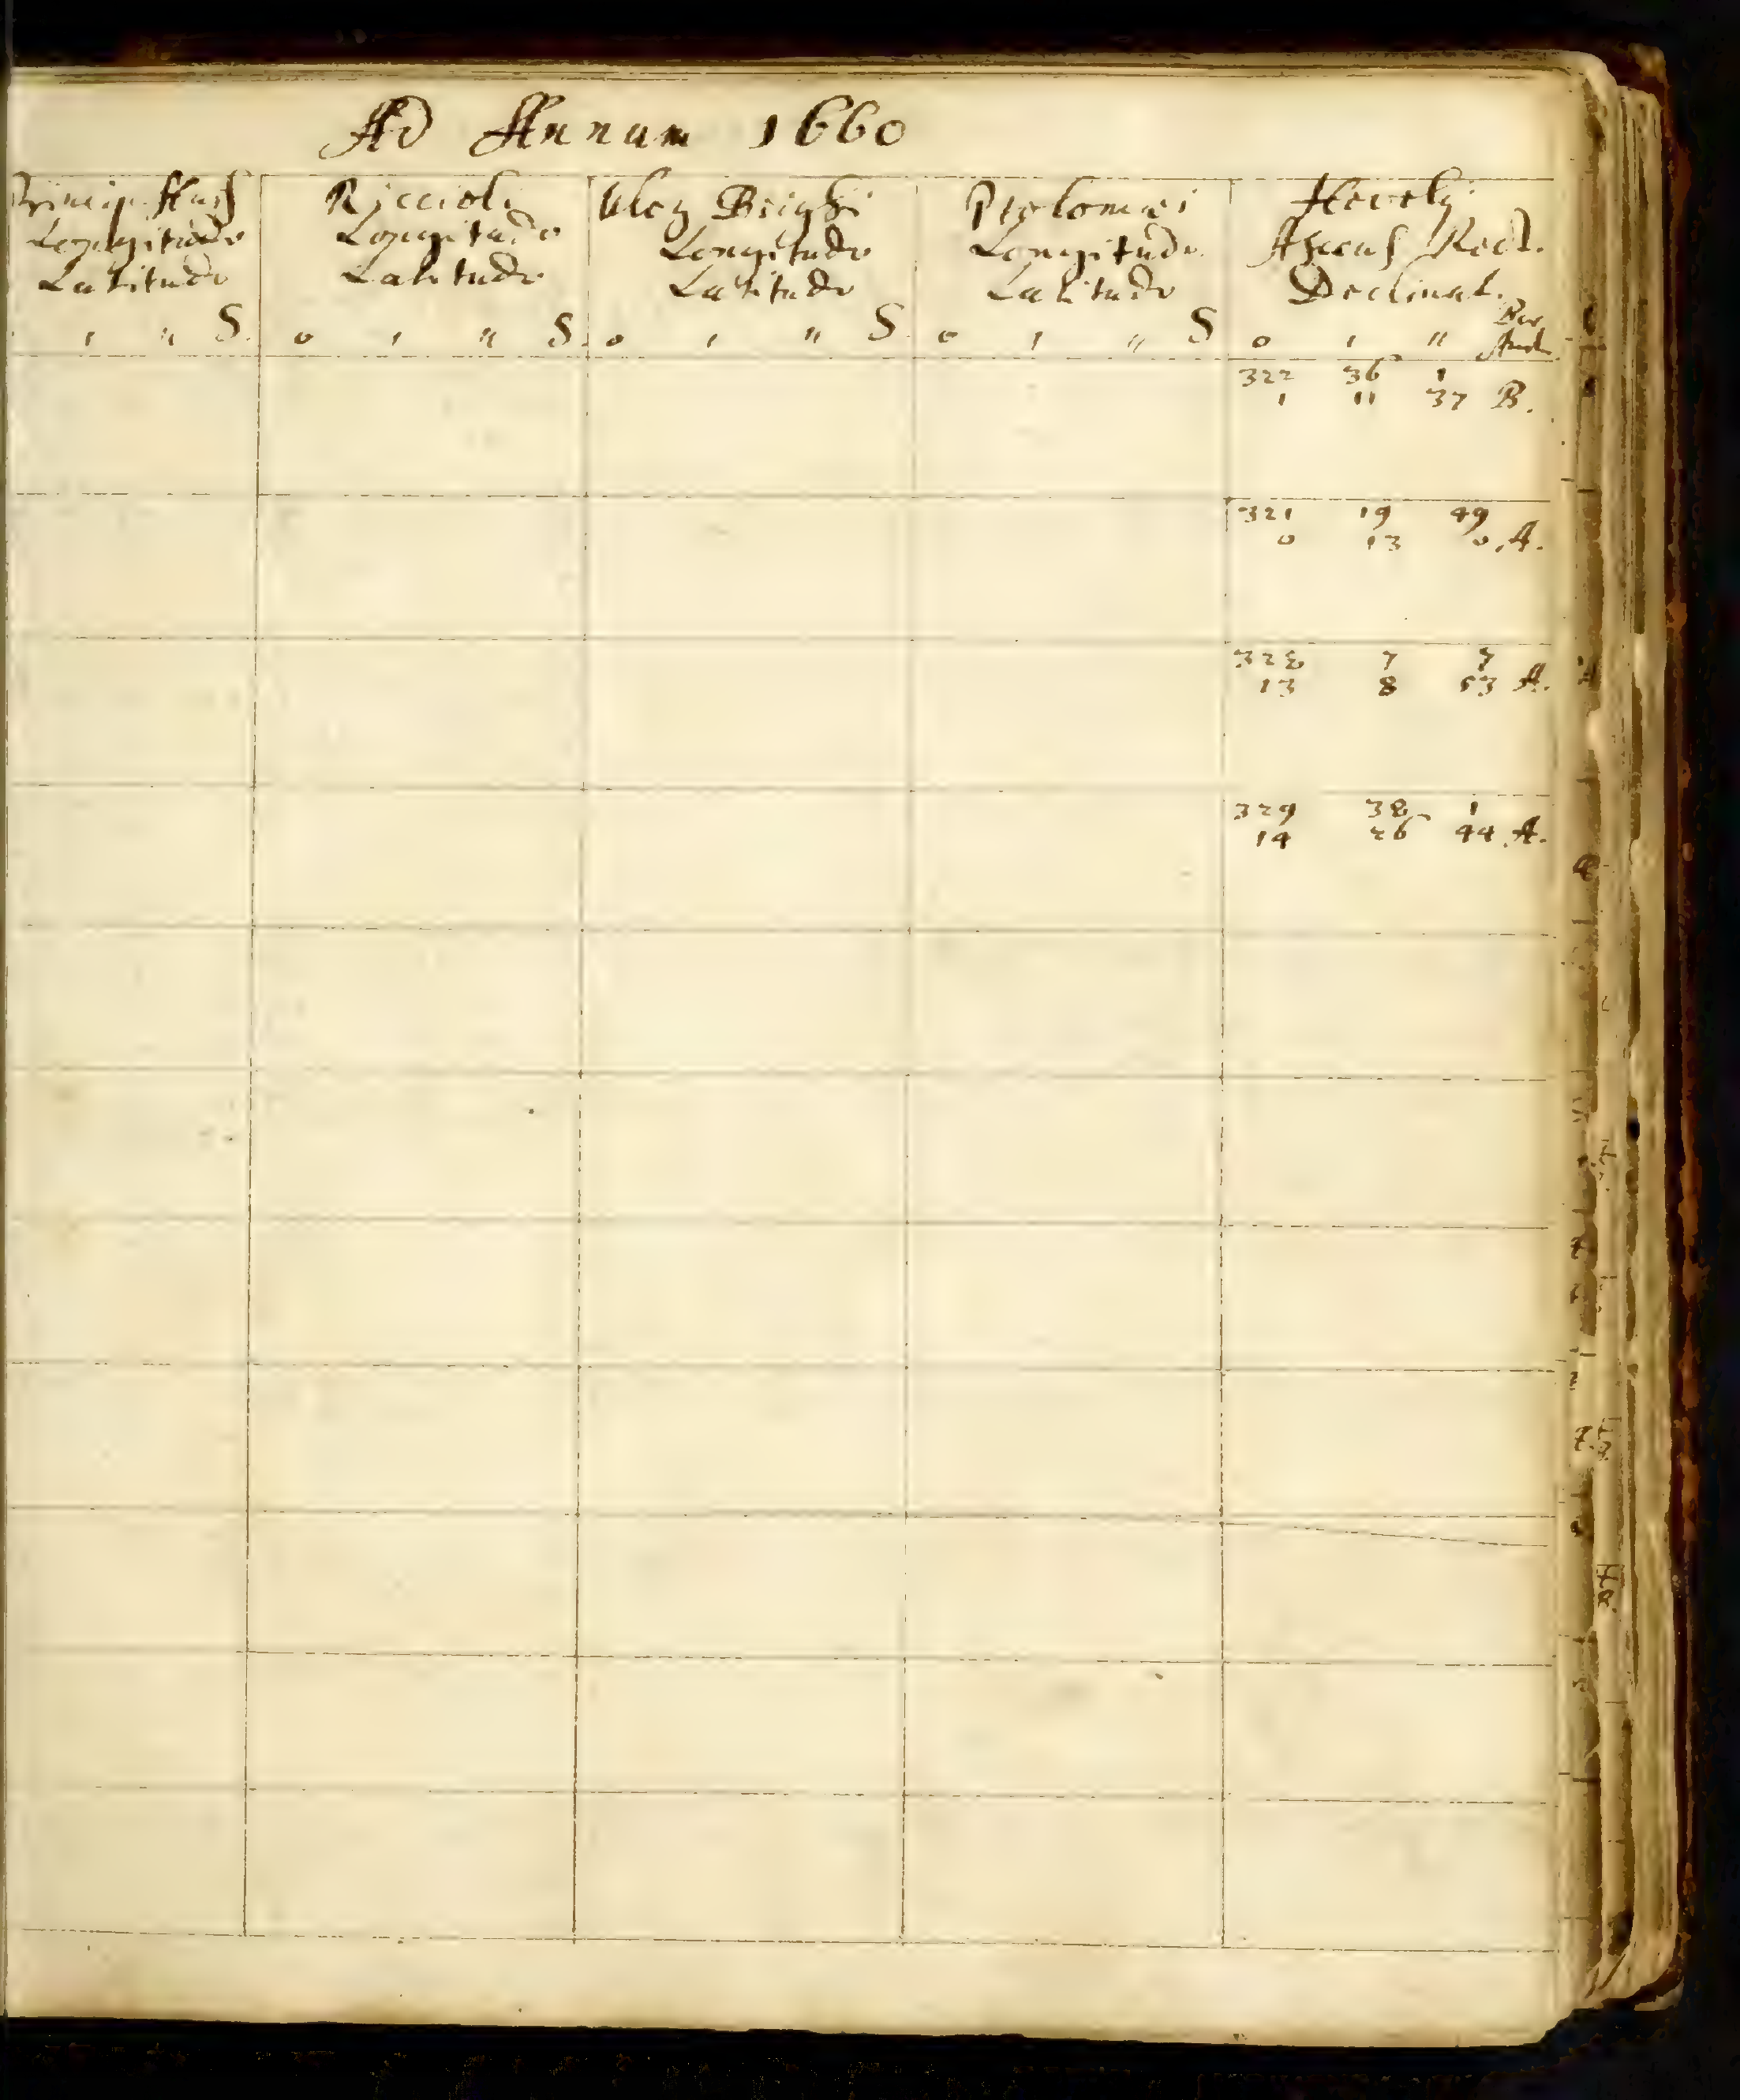 Ad Annum 1660
Princip. Hass
Longitudo
Latitudo
' " S.
Riccioli
Longitudo
Latitudo
o ' " S.
Uleg Beighi
Longitudo
Latitudo
o ' " S
Ptolomaei
Longitudo
Latitudo
o ' " S
Hevelij
Ascens Rect.
Declinat.
Bor
o ' " Aust.
322 36 1
1 11 37 B.
321 19 49
0 13 0 A.
328 7 7
13 8 53 A.
329 38 1
14 26 44 A.